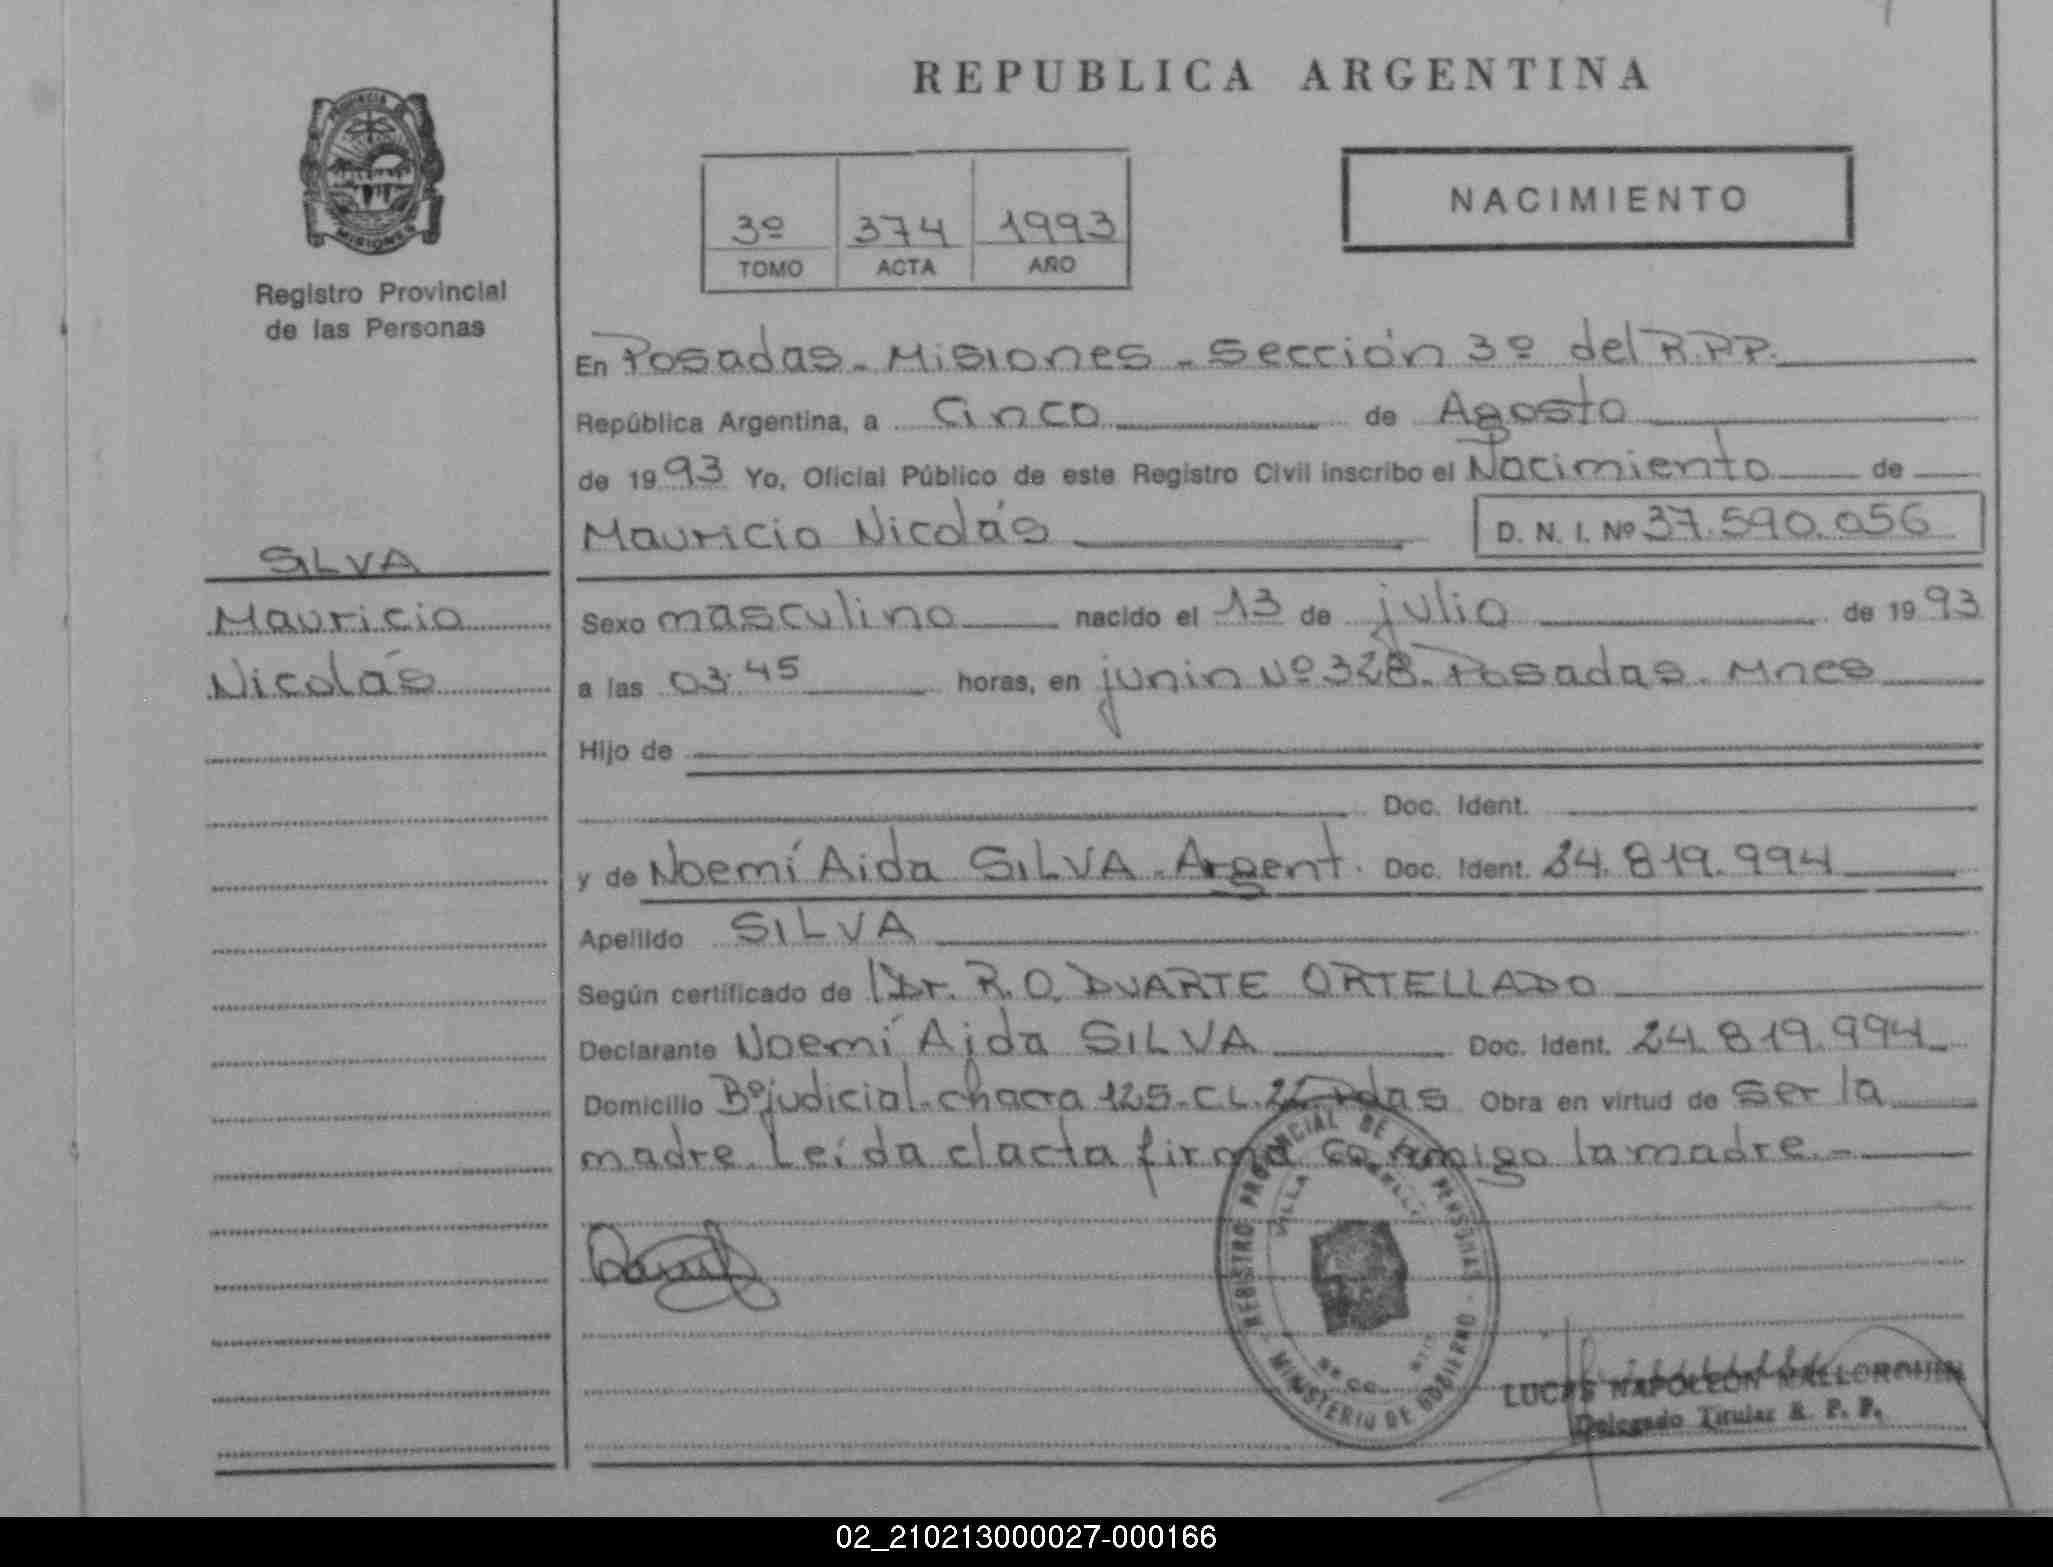 REPUBLICA ARGENTINA
PROVINCIA
MISIONES
Registro Provincial
de las Personas
3º 374 1993
TOMO ACTA AÑO
NACIMIENTO
En Posadas - Misiones - Sección 3º del R.P.P.
República Argentina, a Cinco de Agosto
de 1993 Yo, Oficial Público de este Registro Civil inscribo el Nacimiento de
Mauricio Nicolás D. N. I. Nº 37.590.056
SILVA
Mauricio
Nicolás
Sexo masculino nacido el 13 de julio de 1993
a las 03.45 horas, en junin Nº 328. Posadas. Mnes
Hijo de
Doc. Ident.
y de Noemí Aida SILVA. Argent. Doc. Ident. 24.819.994
Apellido SILVA
Según certificado de Dr. R.O. DUARTE ORTELLADO
Declarante Noemí Aida SILVA Doc. Ident. 24.819.994
Domicilio Bº judicial. chacra 125. C.L. Pdas Obra en virtud de ser la
madre. Leída el acta firma conmigo la madre. -
REGISTRO PROVINCIAL DE LAS PERSONAS - MINISTERIO DE GOBIERNO -
VILLA
LUCAS NAPOLEON MALLORQUIN
Delegado Titular R. P. P.
02_210213000027-000166